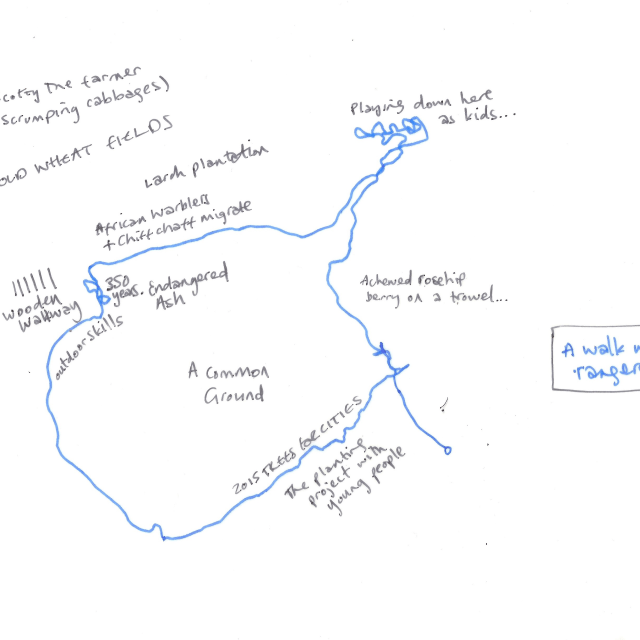 the farmer
scrumping cabbages)
OLD WHEAT FIELDS
Larch plantation
African warblers
+ Chiffchaff migrate
Playing down here
as kids...
350
years.
Endangered
Ash
Wooden
Walkway
outdoor skills
A chewed rosehip
berry on a trowel...
A Common
Ground
A walk
ranger
2015 TREES FOR CITIES
The planting
project with
young people